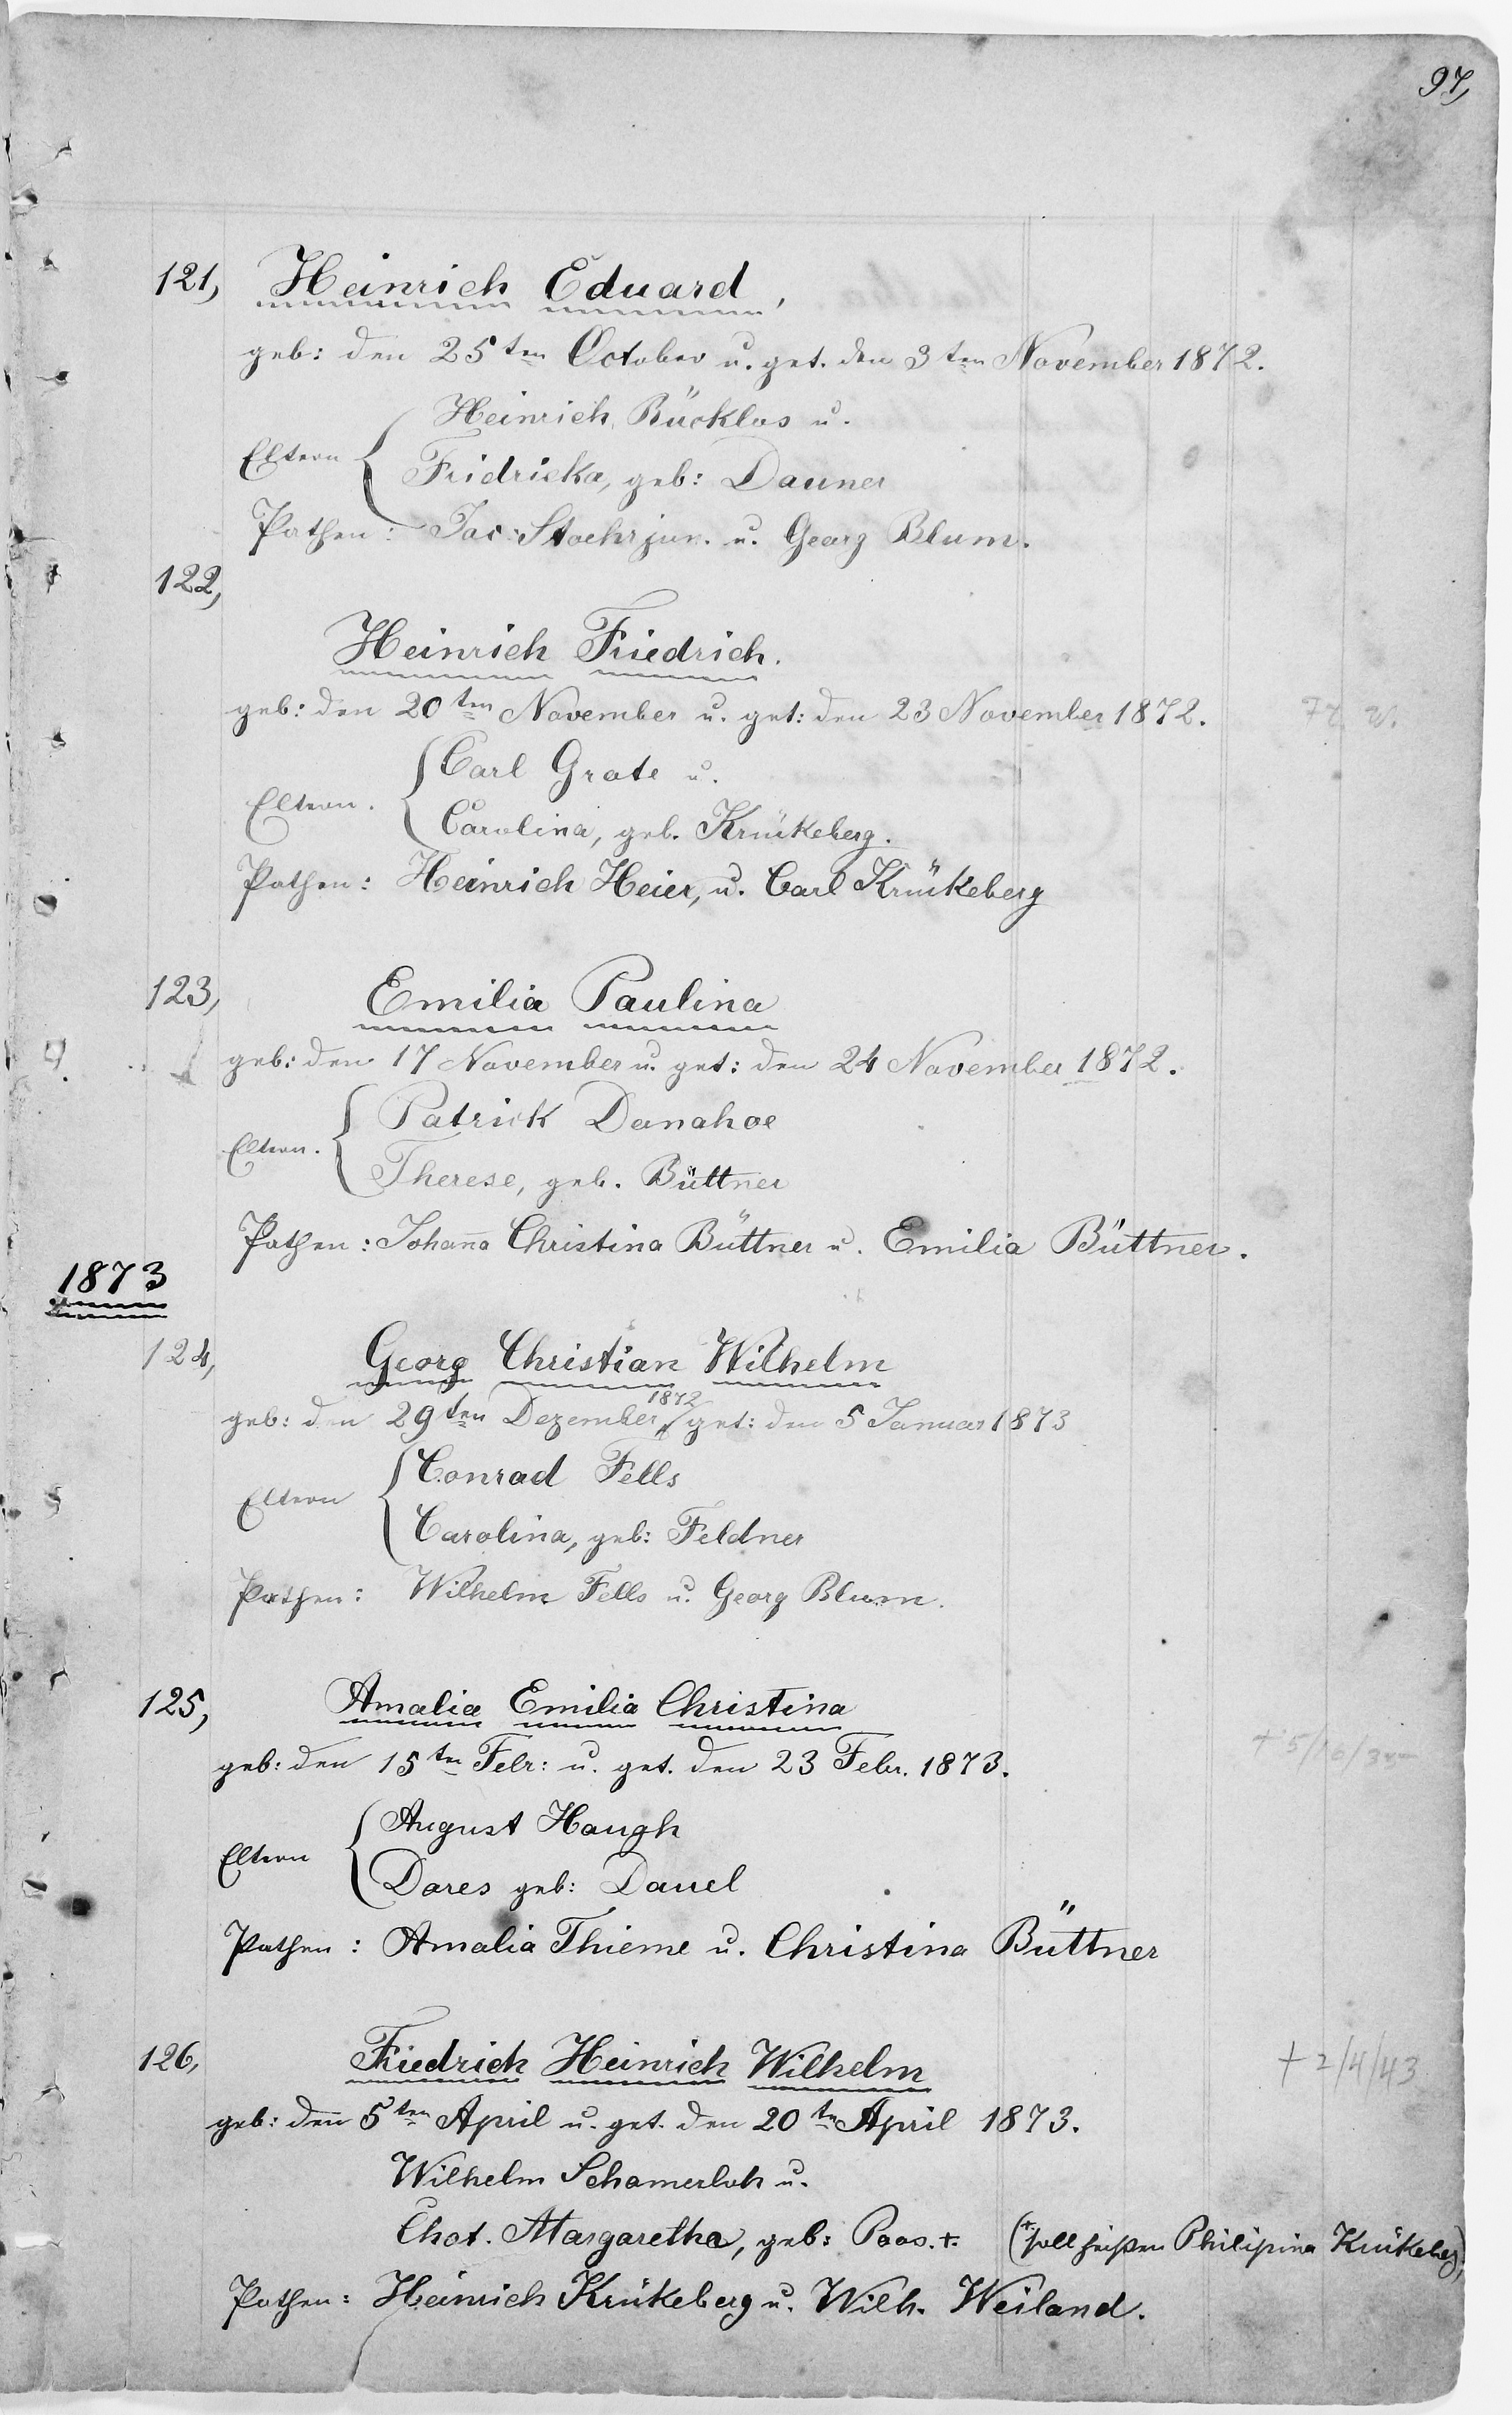 97,
121, Heinrich Eduard,
geb: den 25ten October u. get. den 3ten November 1872.
Heinrich Bücklos u.
Eltern
Fridricka, geb: Dauner
Pathen: Jac. Stoehr jun. u. Georg Blum.
122,
Heinrich Friedrich.
geb: den 20ten November u. get: den 23 November 1872.
Carl Grote u.
Eltern.
Carolina, geb. Krükeberg.
Pathen: Heinrich Heier, u. Carl Krükeberg
123, Emilia Paulina
geb: den 17 November u. get: den 24 November 1872.
Patrick Donahoe
Eltern.
Therese, geb. Büttner
Pathen: Johanna Christina Büttner u. Emilia Büttner.
1873
124, Georg Christian Wilhelm
geb: den 29ten Dezember 1872 get: den 5 Januar 1873
Conrad Fells
Eltern
Carolina, geb: Feldner
Pathen: Wilhelm Fells u. Georg Blum.
125, Amalia Emilia Christina
geb: den 15ten Febr: u. get. den 23 Febr. 1873.
August Haugh
Eltern
Dores geb: Dauel
Pathen: Amalia Thieme u. Christina Büttner
126, Friedrich Heinrich Wilhelm + 2/4/43
geb: den 5ten April u. get. den 20ten April 1873.
Wilhelm Schamerloh u.
Chat. Margaretha, geb: Paas. + (+ soll heißen Philipina Krükeberg)
Pathen: Heinrich Krükeberg u. Wilh. Weiland.